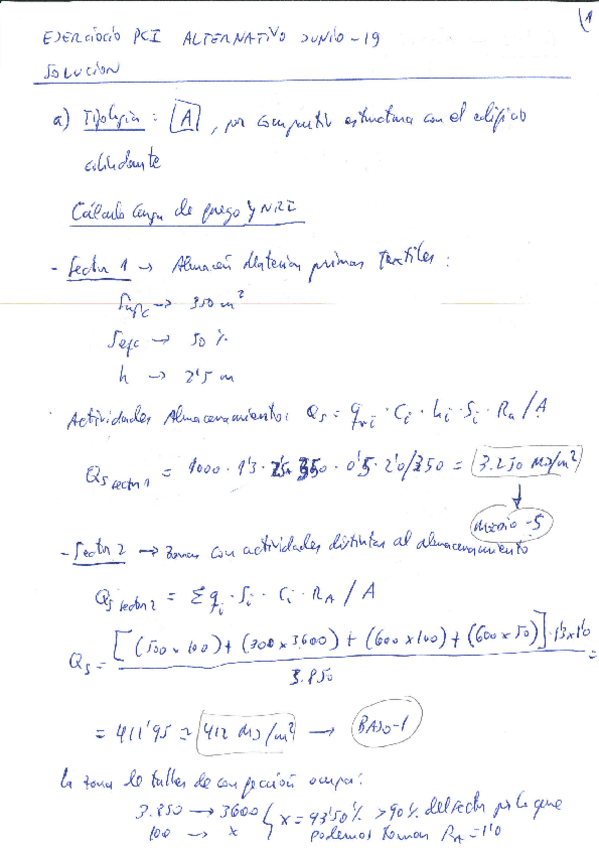 1
EJERCIOCIO PCI ALTERNATIVO JUNIO-19
SOLUCION
a) Tipología : A , por compartir estructura con el edificio
colindante
Cálculo carga de fuego y NRI
- Sector 1 → Almacén Materias primas Textiles :
Sup → 350 m²
→ 50 %
h → 2'5 m
Actividades Almacenamiento: Qs = qvi · Ci · hi · Si · Ra / A
Qs sector 1 = 1000 · 1'3 · 2'5 · 350 · 0'5 · 2'0/350 = 3.250 MJ/m²
medio-5
- Sector 2 → zonas con actividades distintas al almacenamiento
Qs sector 2 = Σ qi · Si · Ci · RA / A
Qs = [(500 x 100) + (300 x 3.600) + (600 x 100) + (600 x 50)] · 1'3 x 1'0 =
3.850
= 411'95 ≃ 412 MJ/m² → BAJO-1
La zona de taller de confección ocupa:
3.850 → 3600 } x = 93'50% > 90% del sector por lo que
100 → x podemos tomar RA = 1'0